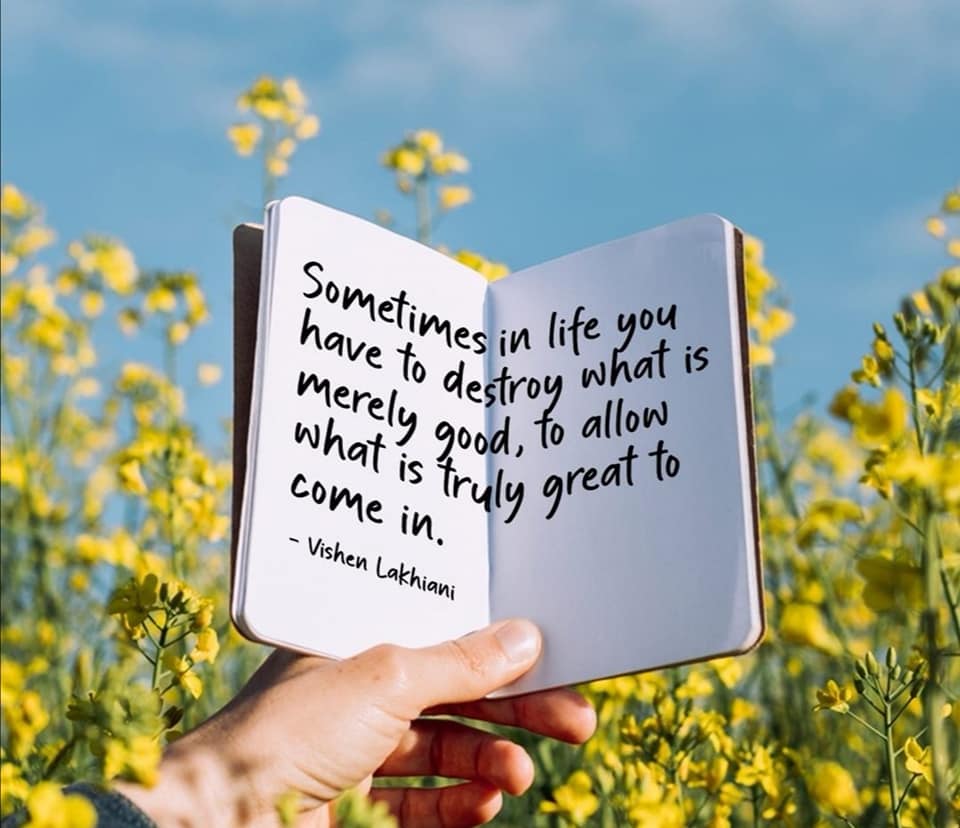 Sometimes in life you
have to destroy what is
merely good, to allow
what is truly great to
come in.
- Vishen Lakhiani